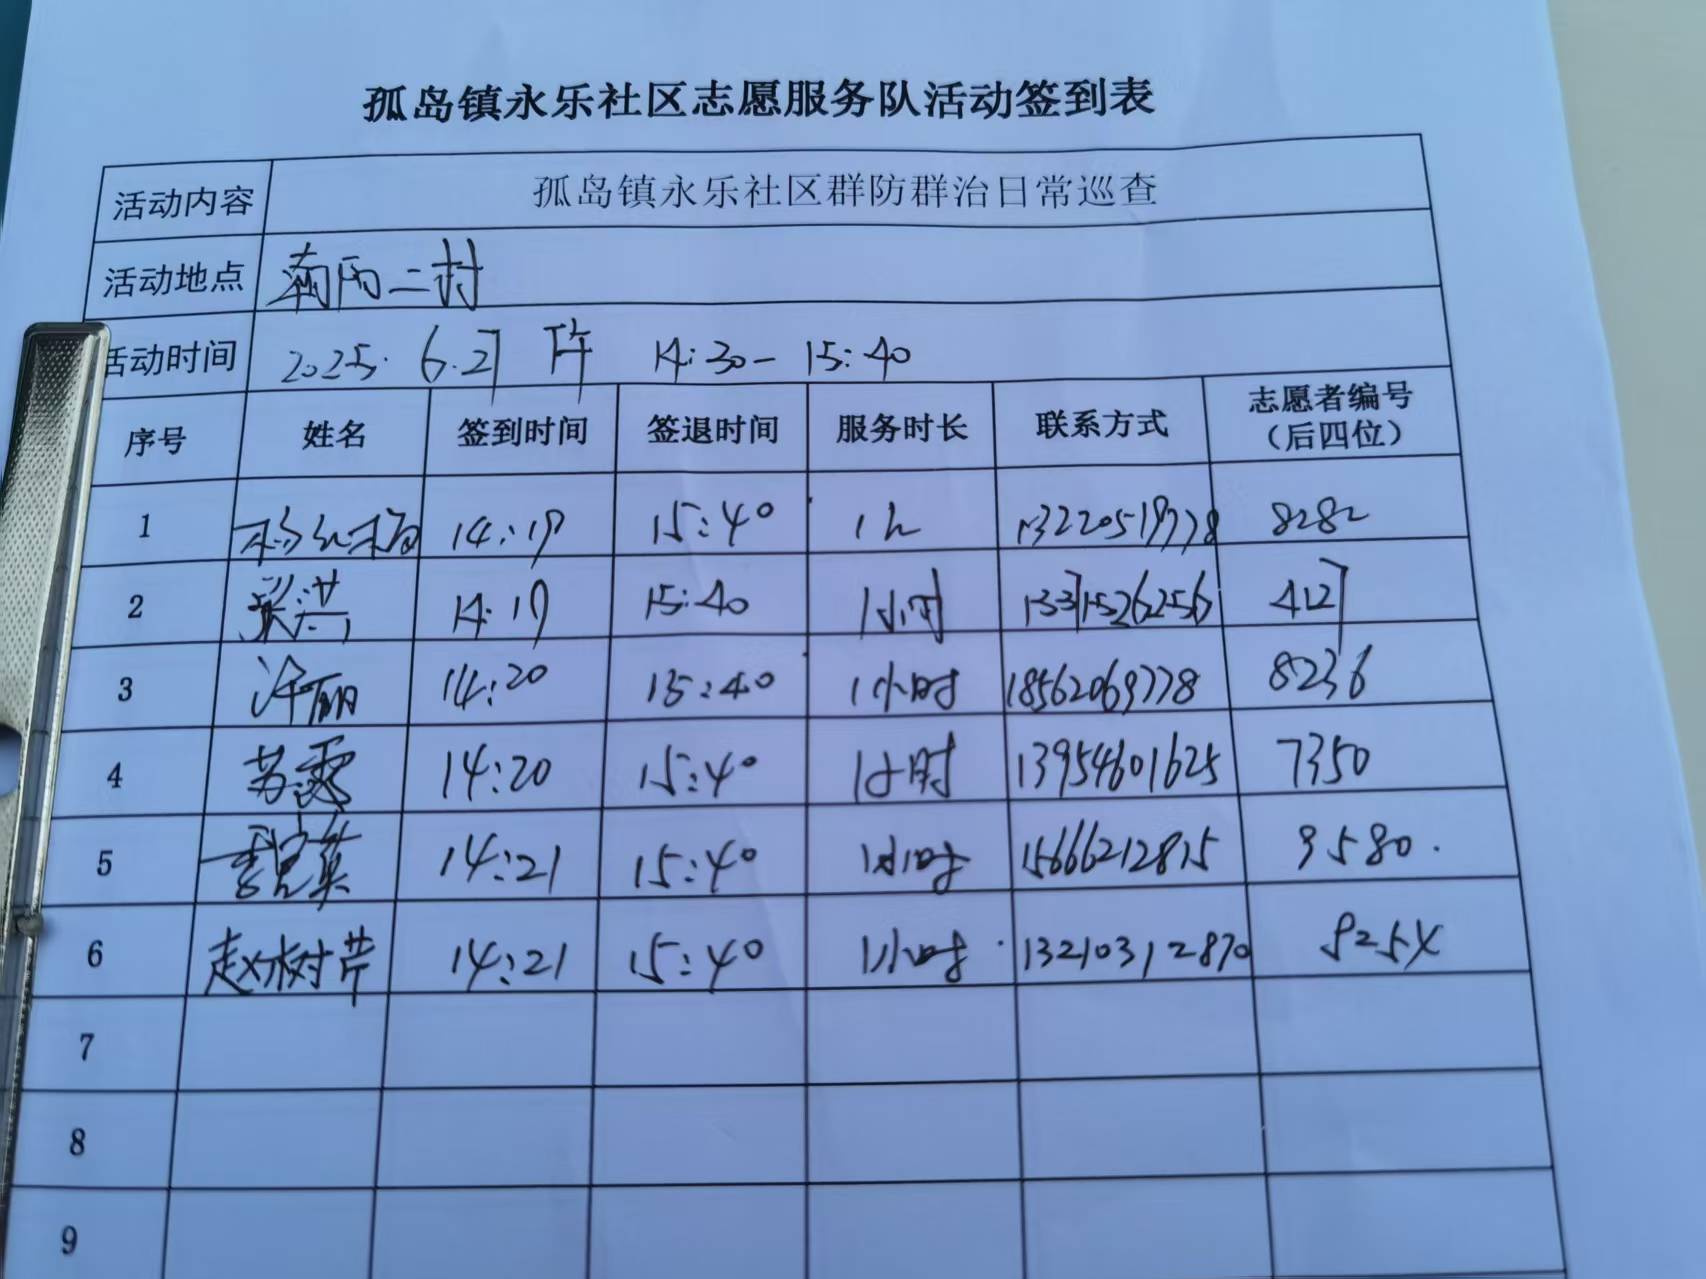 孤岛镇永乐社区志愿服务队活动签到表
活动内容 孤岛镇永乐社区群防群治日常巡查
活动地点 二村
活动时间 2025.6.27 下午 14:30-15:40
序号 姓名 签到时间 签退时间 服务时长 联系方式 志愿者编号（后四位）
1 14:19 15:40 1h 13220519778 8282
2 张洪 14:19 15:40 1小时 13371526256 4127
3 许丽 14:20 15:40 1小时 18562069778 8236
4 苏霞 14:20 15:40 1小时 13954601625 7350
5 14:21 15:40 1小时 15666212815 9580.
6 赵树芹 14:21 15:40 1小时 13210312870 8254
7
8
9